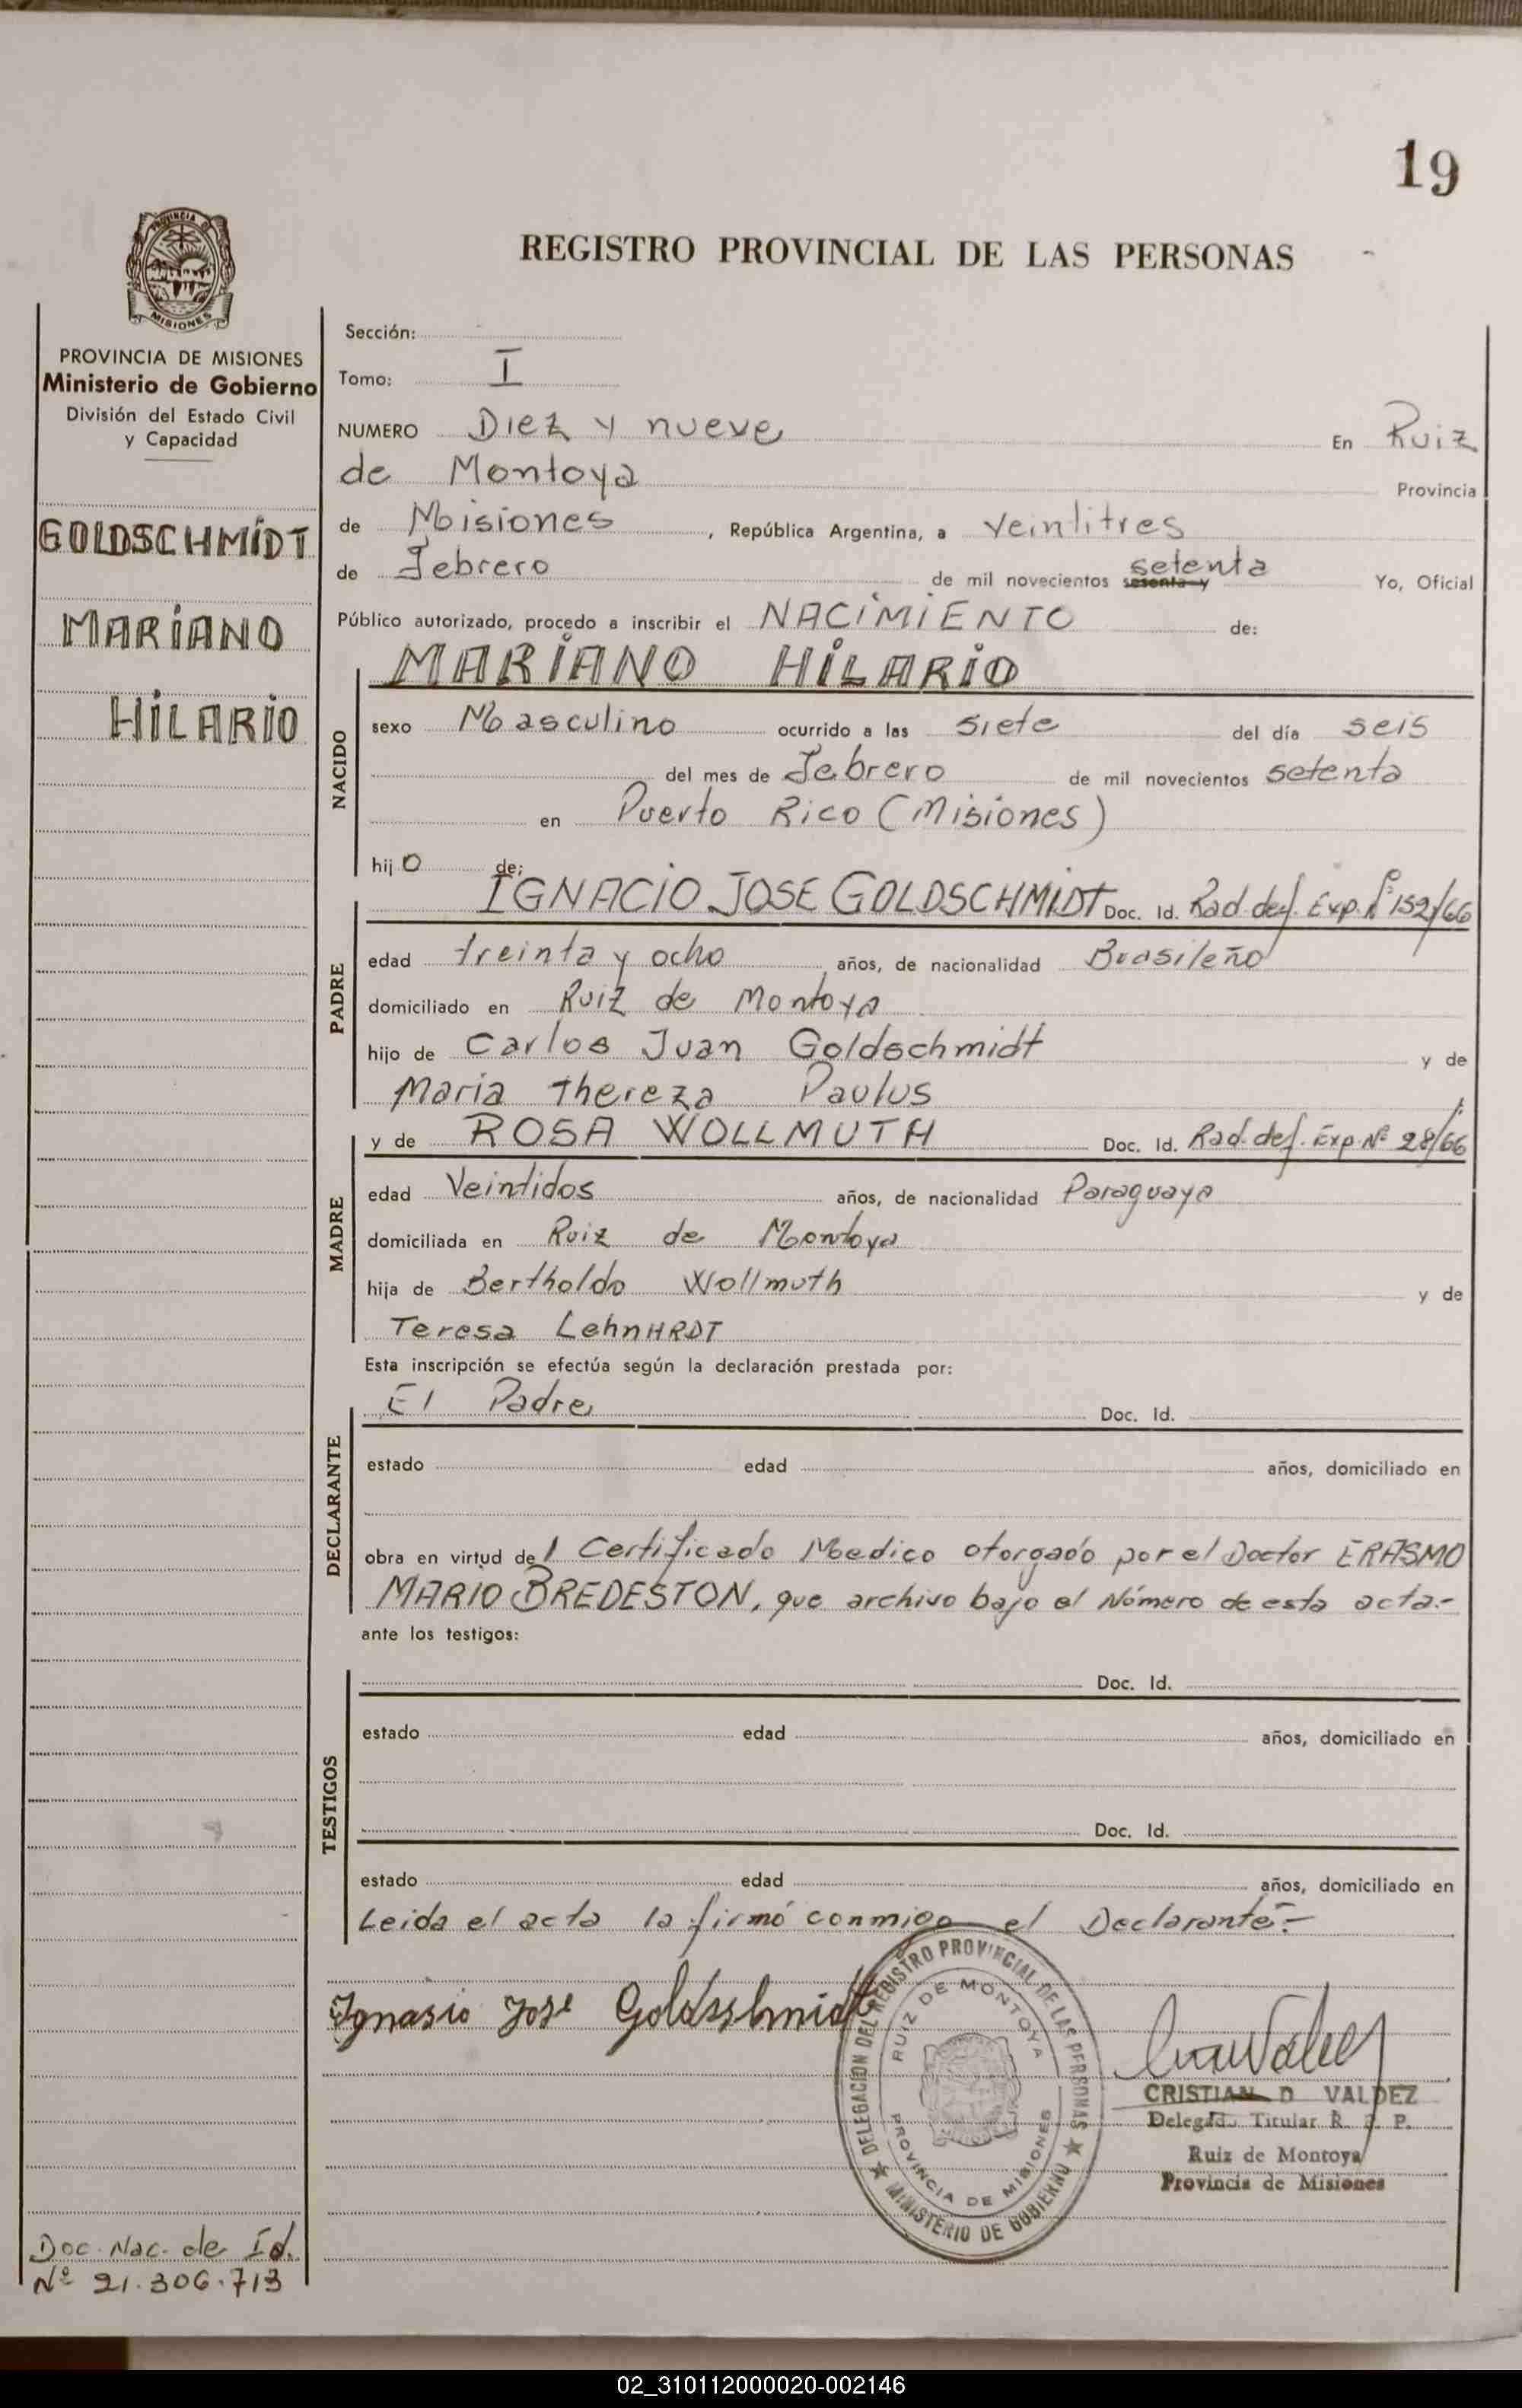 19
REGISTRO PROVINCIAL DE LAS PERSONAS
PROVINCIA DE MISIONES
Ministerio de Gobierno
División del Estado Civil
y Capacidad
GOLDSCHMIDT
MARIANO
HILARIO
Doc. Nac. de Id.
Nº 21.306.713
Sección:
Tomo: I
NUMERO Diez y nueve En Ruiz
de Montoya Provincia
de Misiones, República Argentina, a Veintitres
de Febrero de mil novecientos sesenta y setenta Yo, Oficial
Público autorizado, procedo a inscribir el NACIMIENTO de:
MARIANO HILARIO
NACIDO
sexo Masculino ocurrido a las siete del día seis
del mes de Febrero de mil novecientos setenta
en Puerto Rico (Misiones)
hijo de:
PADRE
IGNACIO JOSE GOLDSCHMIDT Doc. Id. Rad. def. Exp. Nº 152/66
edad treinta y ocho años, de nacionalidad Brasileño
domiciliado en Ruiz de Montoya
hijo de Carlos Juan Goldschmidt y de
Maria Thereza Paulus
MADRE
y de ROSA WOLLMUTH Doc. Id. Rad. def. Exp. Nº 28/66
edad Veintidos años, de nacionalidad Paraguaya
domiciliada en Ruiz de Montoya
hija de Bertholdo Wollmuth y de
Teresa LehnHRDT
Esta inscripción se efectúa según la declaración prestada por:
DECLARANTE
El Padre Doc. Id.
estado edad años, domiciliado en
obra en virtud del Certificado Medico otorgado por el Doctor ERASMO
MARIO BREDESTON, que archivo bajo el Número de esta acta.-
ante los testigos:
TESTIGOS
Doc. Id.
estado edad años, domiciliado en
Doc. Id.
estado edad años, domiciliado en
Leida el acta la firmó conmigo el Declarante.-
Ignasio José Goldsshmidt
DELEGACION DEL REGISTRO PROVINCIAL DE LAS PERSONAS
MINISTERIO DE GOBIERNO
RUIZ DE MONTOYA
PROVINCIA DE MISIONES
CRISTIAN D VALDEZ
Delegado Titular R. P. P.
Ruiz de Montoya
Provincia de Misiones
02_310112000020-002146